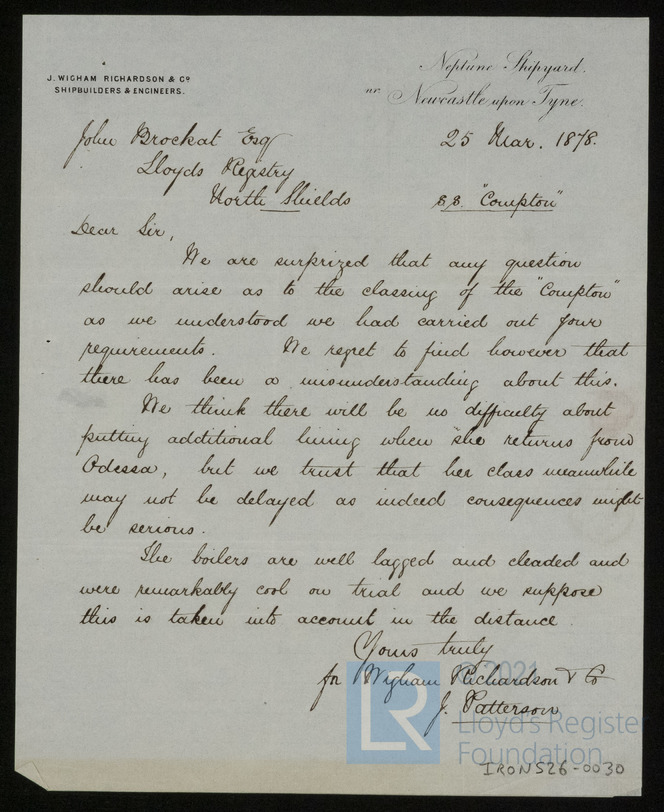 J. WIGHAM RICHARDSON & Co
SHIPBUILDERS & ENGINEERS.
Neptune Shipyard.
nr Newcastle upon Tyne.
25 Mar. 1878.
John Brockat Esq
Lloyds Registry
North Shields
S.S. "Compton"
Dear Sir,
We are surprized that any question
should arise as to the classing of the "Compton"
as we understood we had carried out your
requirements. We regret to find however that
there has been a misunderstanding about this.
We think there will be no difficulty about
putting additional lining when she returns from
Odessa, but we trust that her class meanwhile
may not be delayed as indeed consequences might
be serious.
The boilers are well lagged and cleaded and
were remarkably cool on trial and we suppose
this is taken into account in the distance.
Yours truly
for Wigham Richardson & Co
J. Patterson
© 2021
LR
Lloyd's Register
Foundation
IRON526-0030